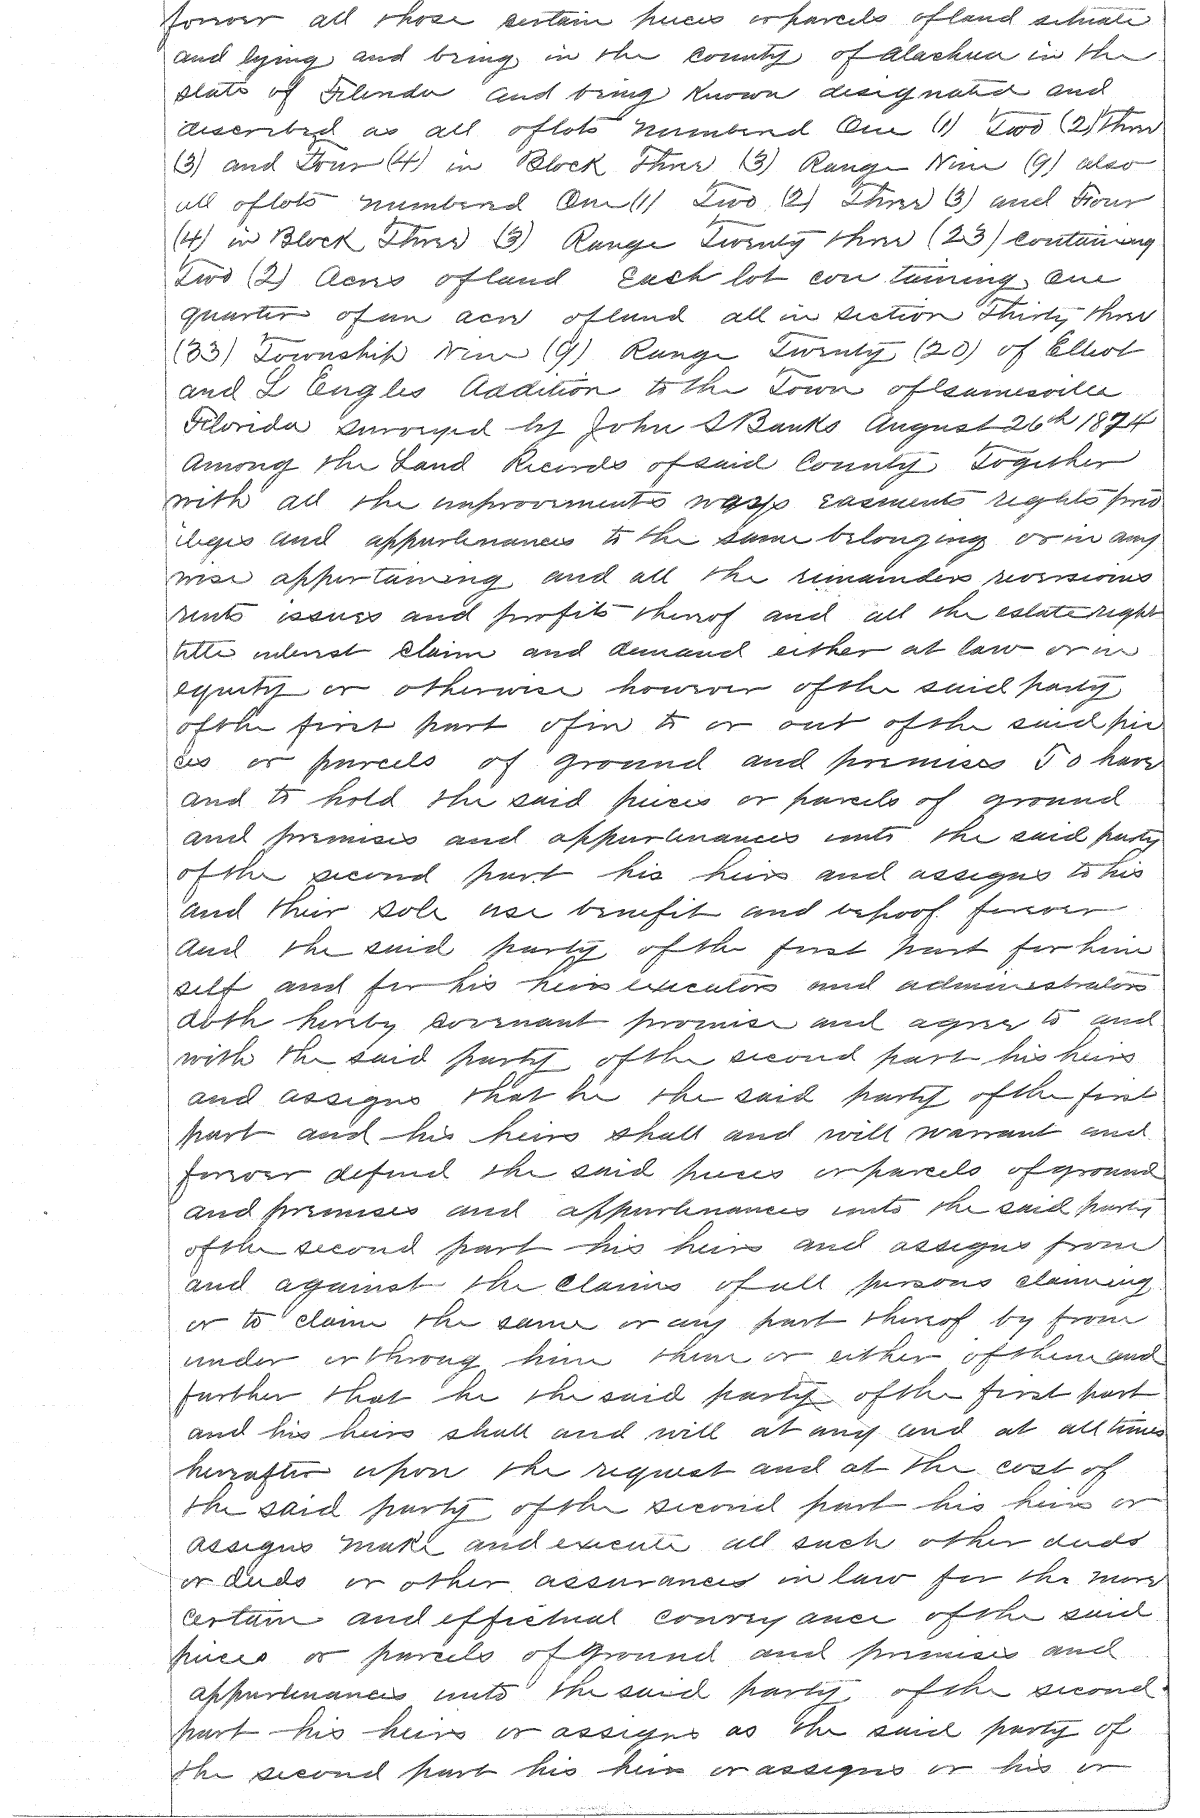 forever all those certain pieces or parcels of land situate
and lying and being in the County of Alachua in the
State of Florida and being Known designated and
described as all of lots numbered One (1) Two (2) Three
(3) and Four (4) in Block Three (3) Range Nine (9) also
all of lots numbered One (1) Two (2) Three (3) and Four
(4) in Block Three (3) Range Twenty three (23) containing
Two (2) Acres of land Each lot con taining one
quarter of an acre of land all in Section Thirty three
(33) Township Nine (9) Range Twenty (20) of Elliot
and L Engles Addition to the Town of Gainesville
Florida surveyed by John S Banks August 26th 1874
Among the Land Records of said County Together
with all the improvements ways easments rights priv
ileges and appurtenances to the same belonging or in any
wise appertaining and all the remainders reversions
rents issues and profits thereof and all the estate right
title interest claim and demand either at law or in
equity or otherwise however of the said party
of the first part of in to or out of the said pie
ces or parcels of ground and premises To have
and to hold the said pieces or parcels of ground
and premises and appurtenances unto the said party
of the second part his heirs and assigns to his
and their sole use benefit and behoof forever
And the said party of the first part for him
self and for his heirs executors and administrators
doth hereby covenant promise and agree to and
with the said party of the second part his heirs
and assigns that he the said party of the first
part and his heirs shall and will warrant and
forever defend the said pieces or parcels of ground
and premises and appurtenances unto the said party
of the second part his heirs and assigns from
and against the claims of all persons claiming
or to claim the same or any part thereof by from
under or throug him them or either of them and
further that he the said party of the first part
and his heirs shall and will at any and at all times
hereafter upon the request and at the cost of
the said party of the second part his heirs or
assigns make and execute all such other deeds
or deeds or other assurances in law for the more
certain and effectual conveyance of the said
pieces or parcels of ground and premises and
appurtenances unto the said party of the second
part his heirs or assigns as the said party of
the second part his heirs or assigns or his or